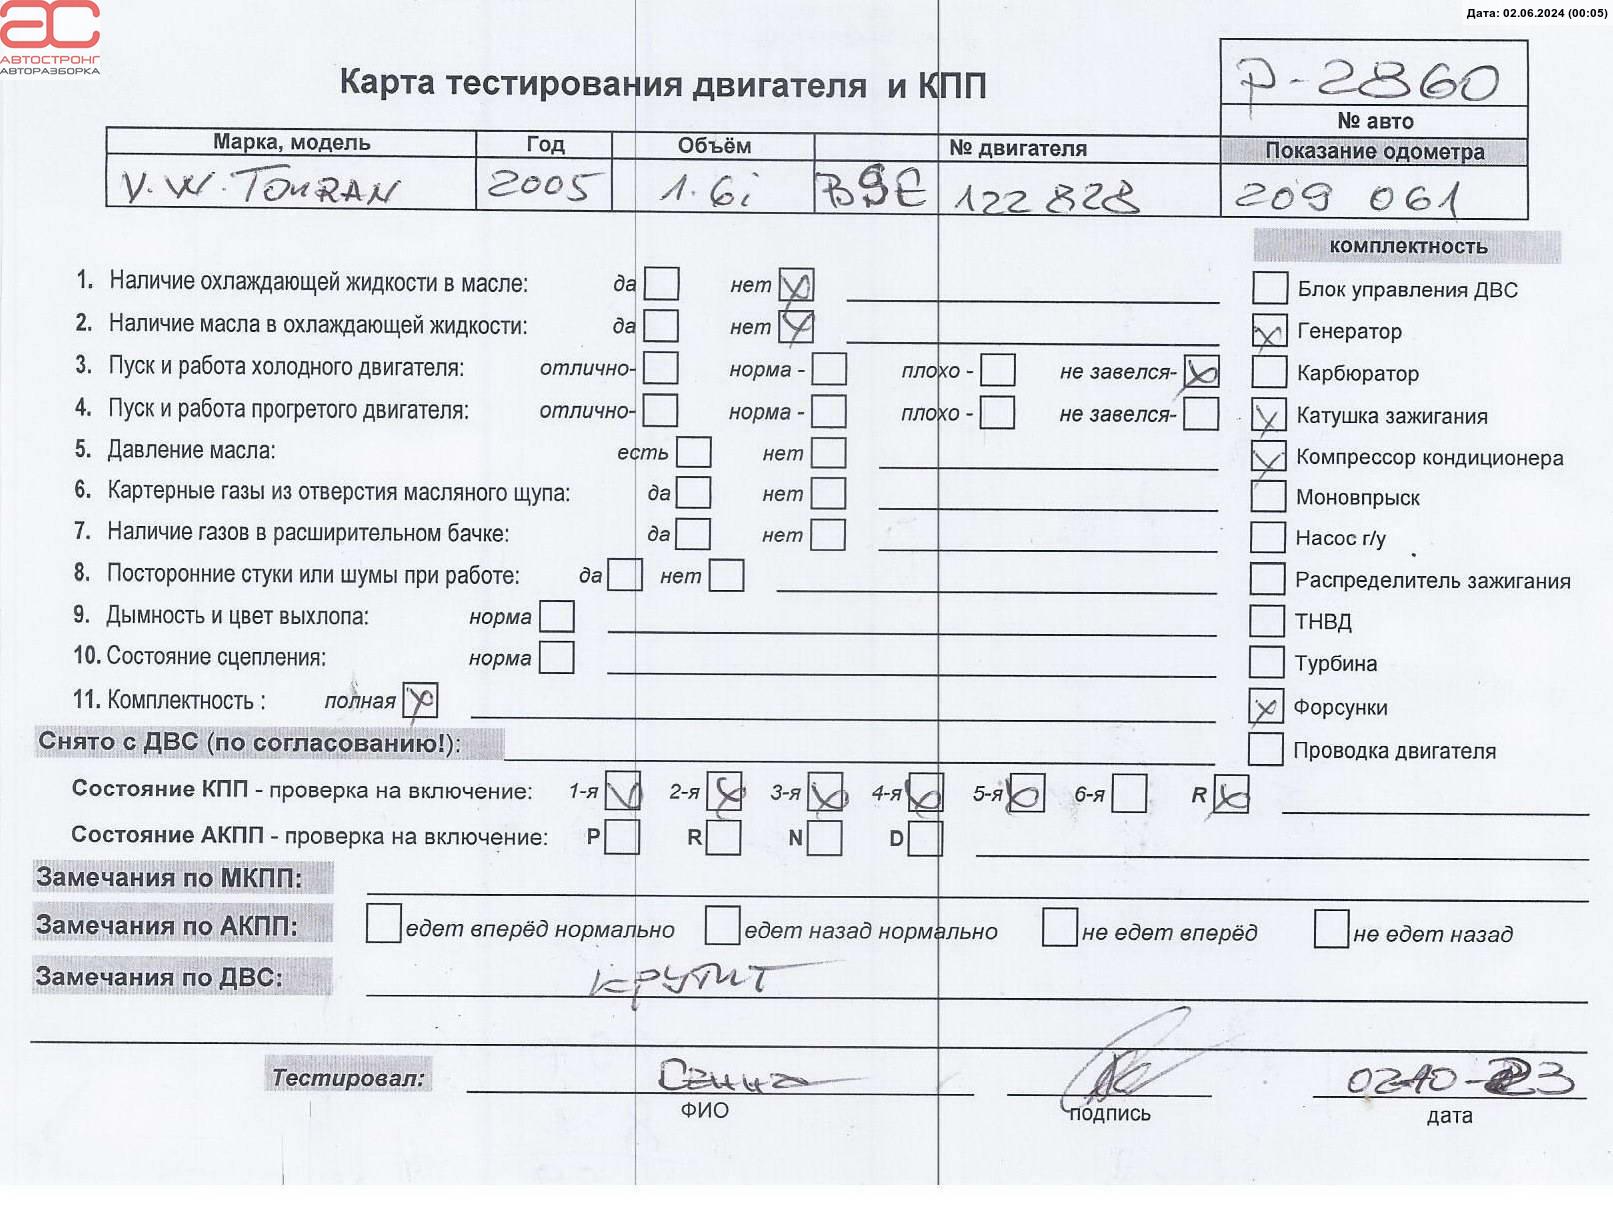 Дата: 02.06.2024 (00:05)
АС
АВТОСТРОНГ
АВТОРАЗБОРКА
Карта тестирования двигателя и КПП
Р-2860
№ авто
Марка, модель Год Объём № двигателя Показание одометра
V.W. TOURAN 2005 1.6i BSE 122 828 209 061
комплектность
1. Наличие охлаждающей жидкости в масле: да нет
Блок управления ДВС
2. Наличие масла в охлаждающей жидкости: да нет
Генератор
3. Пуск и работа холодного двигателя: отлично- норма - плохо - не завелся-
Карбюратор
4. Пуск и работа прогретого двигателя: отлично- норма - плохо - не завелся-
Катушка зажигания
5. Давление масла: есть нет
Компрессор кондиционера
6. Картерные газы из отверстия масляного щупа: да нет
Моновпрыск
7. Наличие газов в расширительном бачке: да нет
Насос г/у
8. Посторонние стуки или шумы при работе: да нет
Распределитель зажигания
9. Дымность и цвет выхлопа: норма
ТНВД
10. Состояние сцепления: норма
Турбина
11. Комплектность : полная
Форсунки
Снято с ДВС (по согласованию!):
Проводка двигателя
Состояние КПП - проверка на включение: 1-я 2-я 3-я 4-я 5-я 6-я R
Состояние АКПП - проверка на включение: P R N D
Замечания по МКПП:
Замечания по АКПП: едет вперёд нормально едет назад нормально не едет вперёд не едет назад
Замечания по ДВС: крутит
Тестировал:
ФИО подпись дата